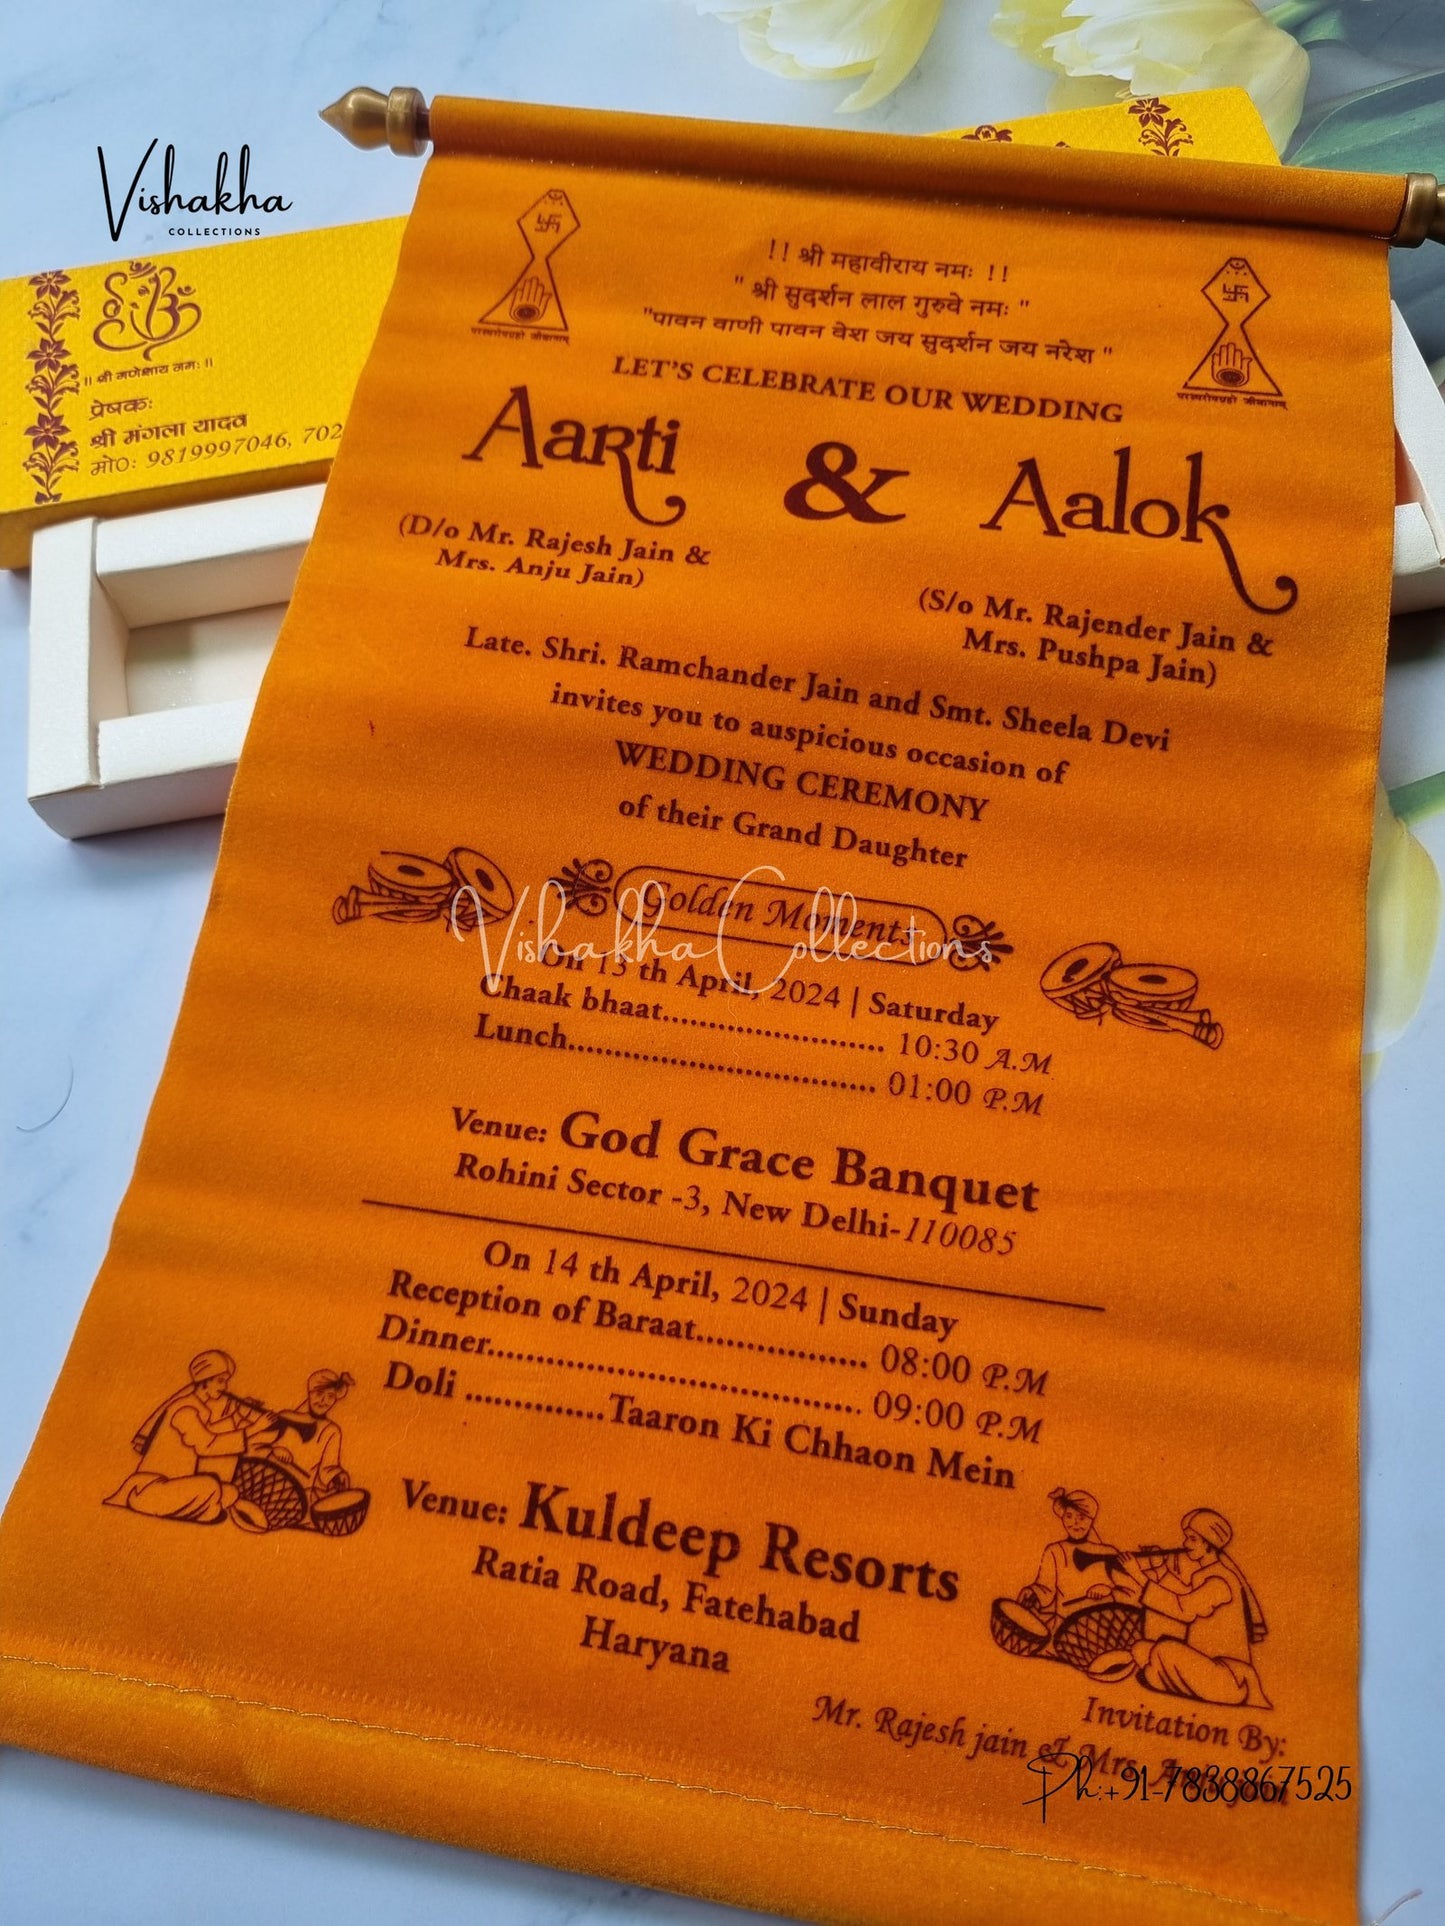 Vishakha
COLLECTIONS
॥ श्री गणेशाय नमः॥
प्रेषकः
श्री मंगला यादव
मो०: 9819997046, 702
!! श्री महावीराय नमः !!
" श्री सुदर्शन लाल गुरुवे नमः "
"पावन वाणी पावन वेश जय सुदर्शन जय नरेश "
परस्परोपग्रहो जीवानाम्
परस्परोपग्रहो जीवानाम्
LET'S CELEBRATE OUR WEDDING
Aarti & Aalok
(D/o Mr. Rajesh Jain &
Mrs. Anju Jain)
(S/o Mr. Rajender Jain &
Mrs. Pushpa Jain)
Late. Shri. Ramchander Jain and Smt. Sheela Devi
invites you to auspicious occasion of
WEDDING CEREMONY
of their Grand Daughter
Golden Moments
Vishakha Collections
On 13 th April, 2024 | Saturday
Chaak bhaat........................ 10:30 A.M
Lunch.................................. 01:00 P.M
Venue: God Grace Banquet
Rohini Sector -3, New Delhi-110085
On 14 th April, 2024 | Sunday
Reception of Baraat.................. 08:00 P.M
Dinner....................................... 09:00 P.M
Doli ...............Taaron Ki Chhaon Mein
Venue: Kuldeep Resorts
Ratia Road, Fatehabad
Haryana
Invitation By:
Mr. Rajesh jain & Mrs.
Ph:+91-7838867525